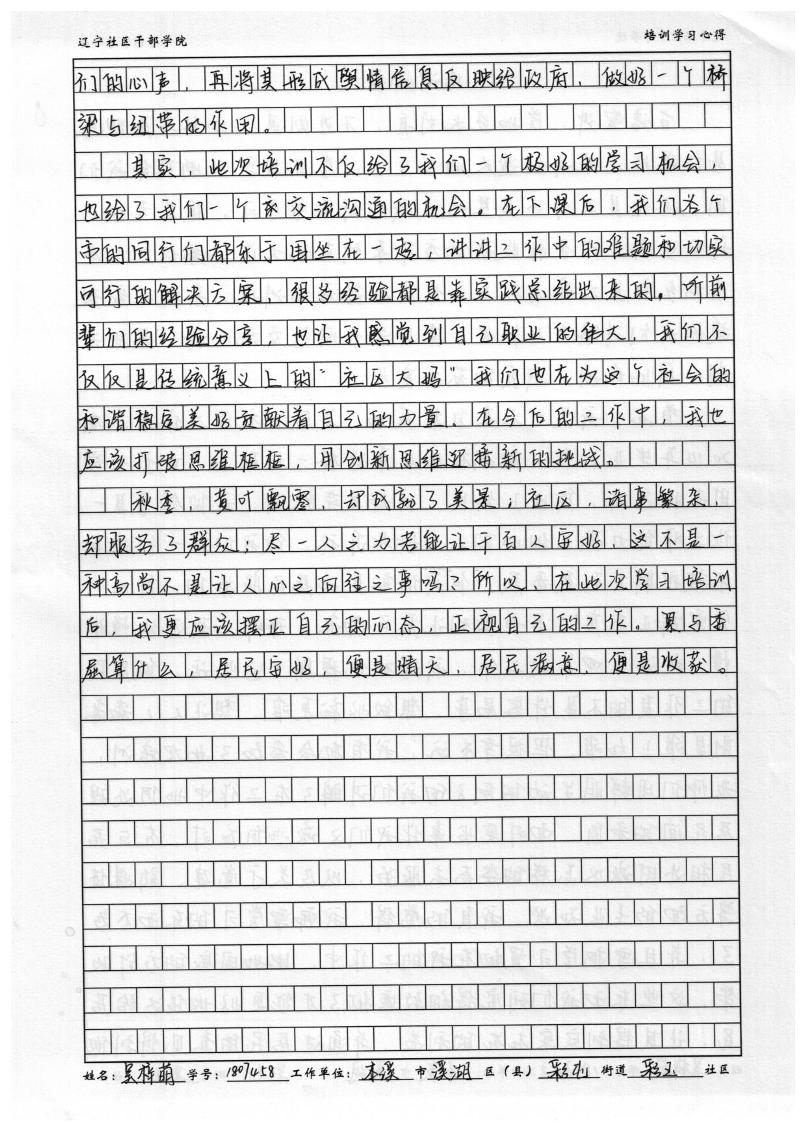 辽宁社区干部学院 培训学习心得
们的心声,再将其形成舆情信息反映给政府,做好一个桥
梁与纽带的作用。
其实,此次培训不仅给了我们一个极好的学习机会,
也给了我们一个交流沟通的机会。在下课后,我们各个
市的同行们都乐于围坐在一起,讲讲工作中的难题和切实
可行的解决方案,很多经验都是靠实践总结出来的。听前
辈们的经验分享,也让我感觉到自己职业的伟大,我们不
仅仅是传统意义上的“社区大妈”我们也在为这个社会的
和谐稳定美好贡献着自己的力量,在今后的工作中,我也
应该打破思维框框,用创新思维迎接新的挑战。
秋季,黄叶飘零,却成就了美景,社区,诸事繁杂,
却服务了群众;尽一人之力若能让千百人安好,这不是一
种高尚不是让人心之向往之事吗?所以,在此次学习培训
后,我更应该摆正自己的心态,正视自己的工作。累与委
屈算什么,居民安好,便是晴天,居民满意,便是收获。
姓名: 学号:1807458 工作单位:本溪 市 溪湖 区(县) 彩 街道 彩 社区